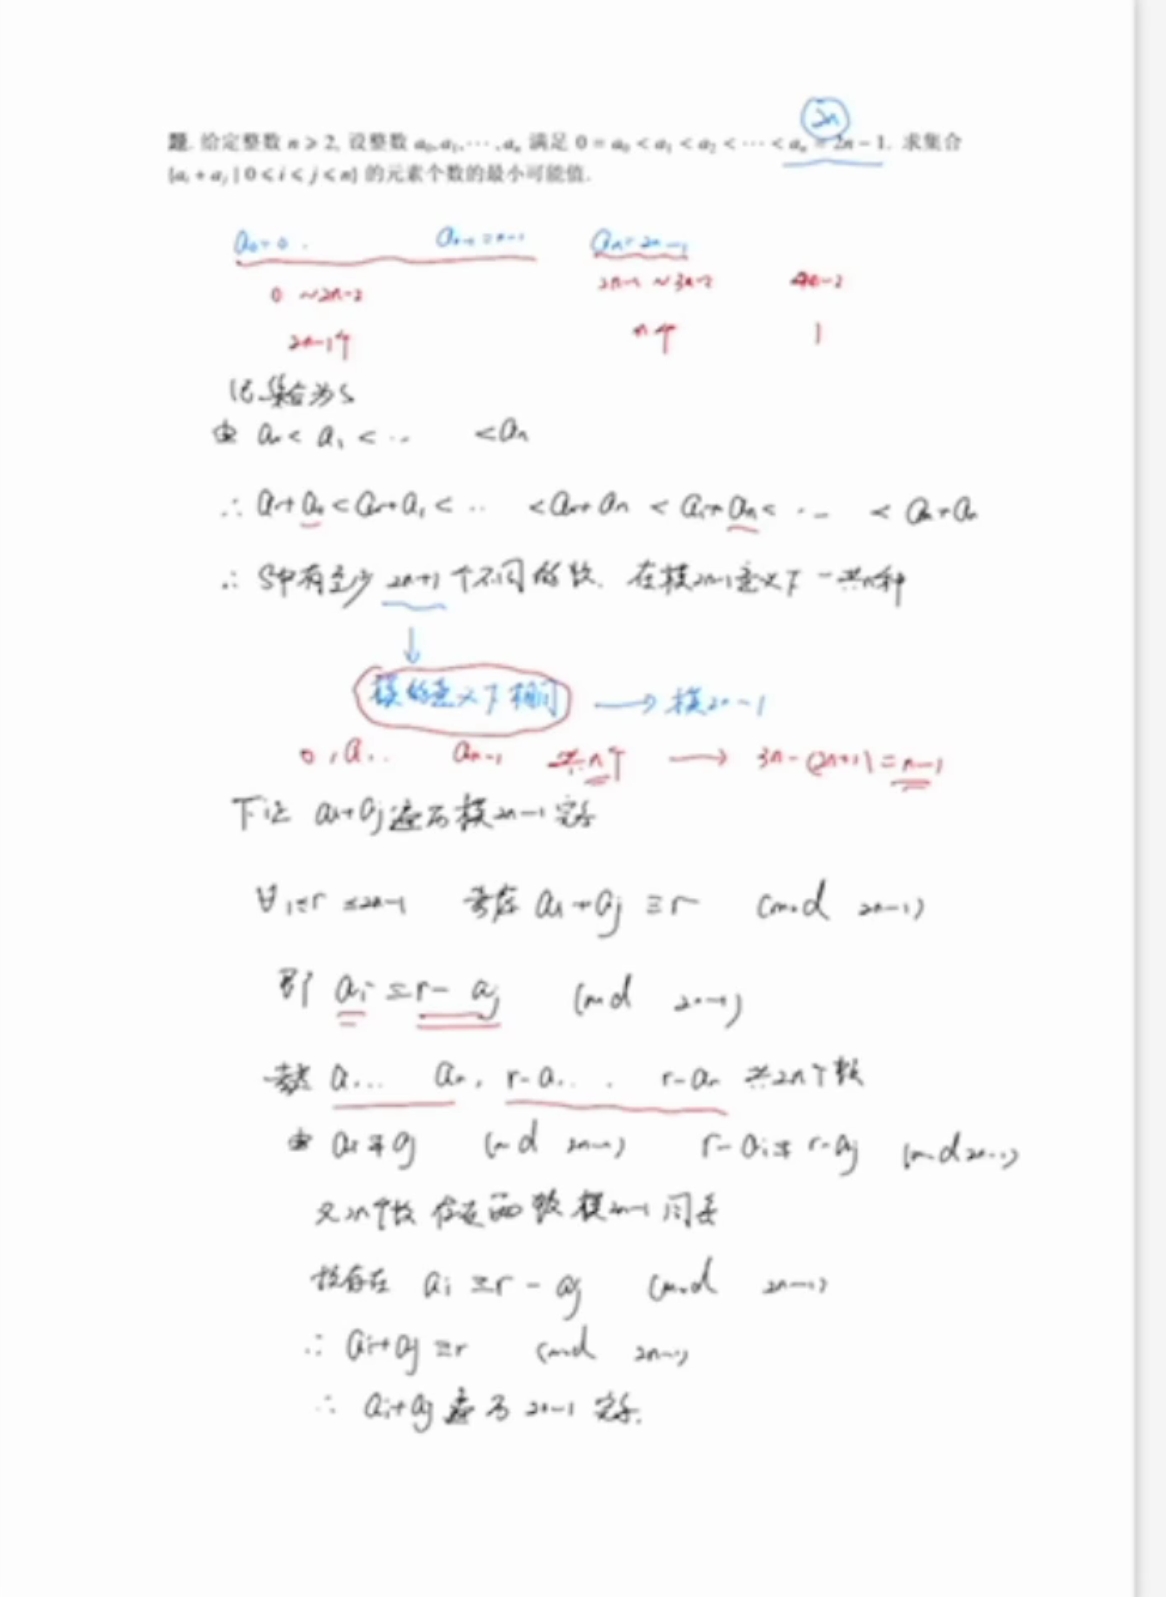 2n
题. 给定整数 n ≥ 2, 设整数 a₀,a₁,⋯,aₙ 满足 0 = a₀ < a₁ < a₂ < ⋯ < aₙ = 2n − 1. 求集合
{aᵢ + aⱼ | 0 ≤ i ≤ j ≤ n} 的元素个数的最小可能值.
a₀=0 . aₙ₋₁=n-1 aₙ=2n-1
0 ~2n-2 2n-1 ~3n-2 4n-2
2n-1个 n个 1
记集合为S
由 a₀< a₁ < ⋯ <aₙ
∴ a₀+a₀<a₀+a₁< ⋯ <a₀+aₙ < a₁+aₙ< ⋯ < aₙ+aₙ
∴ S中有至少 2n+1 个不同的数. 在模2n-1意义下一共n种
↓
模的意义下相同 → 模2n-1
0, a₁.. aₙ₋₁ 共n个 → 3n-(2n+1)=n-1
下证 aᵢ+aⱼ遍历模2n-1完系
∀ 1≤r≤2n-1 aᵢ+aⱼ≡r (mod 2n-1)
即 aᵢ≡r-aⱼ (mod 2n-1)
考虑 a₁... aₙ, r-a₁... r-aₙ 共2n个数
由 aᵢ≢aⱼ (mod 2n-1) r-aᵢ≢r-aⱼ (mod 2n-1)
又2n个数 存在两数模2n-1同余
故存在 aᵢ≡r-aⱼ (mod 2n-1)
∴ aᵢ+aⱼ≡r (mod 2n-1)
∴ aᵢ+aⱼ遍历2n-1完系.